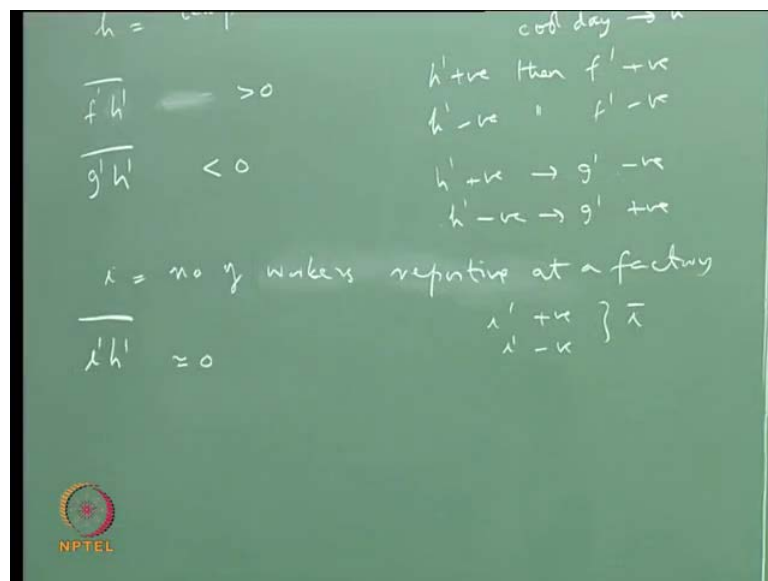 h =
cool day →
h' +ve then f' +ve
h' -ve " f' -ve
f'h' > 0
g'h' < 0
h' +ve → g' -ve
h' -ve → g' +ve
i = no of workers reporting at a factory
i' +ve
i' -ve } i̅
i'h' ≃ 0
NPTEL